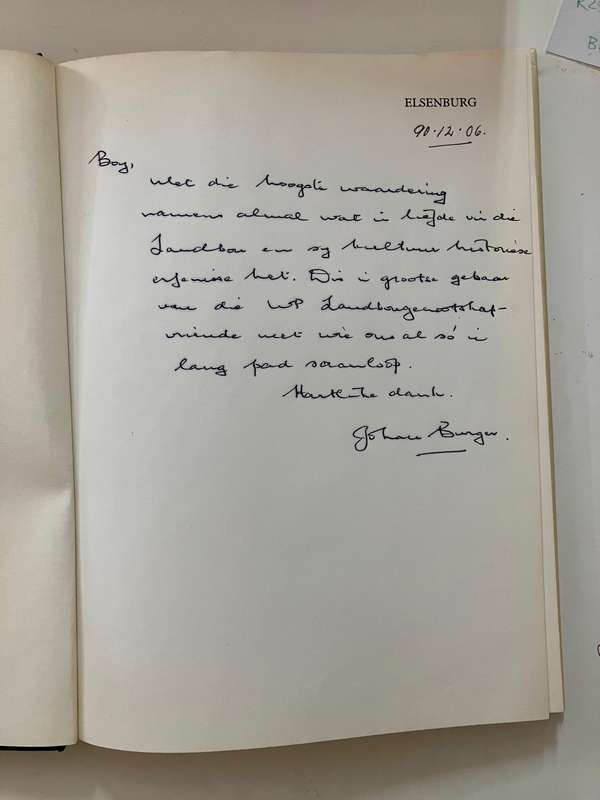 ELSENBURG
90.12.06.
Boy,
Met die hoogste waardering
namens almal wat 'n liefde vir die
Landbou en sy kultuur historiese
erfenisse het. Dis 'n grootse gebaar
van die WP Landbougenootskap-
vriende met wie ons al só 'n
lang pad saamloop.
Hartlike dank.
Johan Burger.